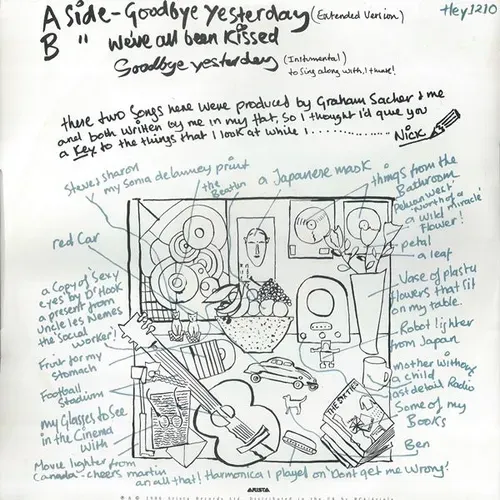 A Side - Goodbye Yesterday (Extended Version)
Hey 1210
B " We've all been Kissed
Goodbye yesterday (Instrumental)
to Sing along with, I think!
these two Songs here were produced by Graham Sacher & me
and both written by me in my flat, So I thought I'd give you
a Key to the things that I look at while I ..............
Nick
Steve; Sharon
my Sonia delauney print
the Beatles
a Japanese mask
things from the
Bathroom
'North of a
a wild miracle'
flower!
petal
a leaf
red Car
a Copy of 'Sexy
eyes' by Dr Hook
a present from
Uncle les Nemes
the Social
worker!
Fruit for my
Stomach
Football
Stadium
my Glasses to See
in the Cinema
with
Movie lighter from
Canada - cheers martin
an all that!
Harmonica I played on 'Dont get me Wrong'
Vase of plastic
flowers that sit
on my table.
Robot lighter
from Japan
mother without
a child
last detail Radio
Some of my
Books
Ben
THE SIXTIES
ARISTA